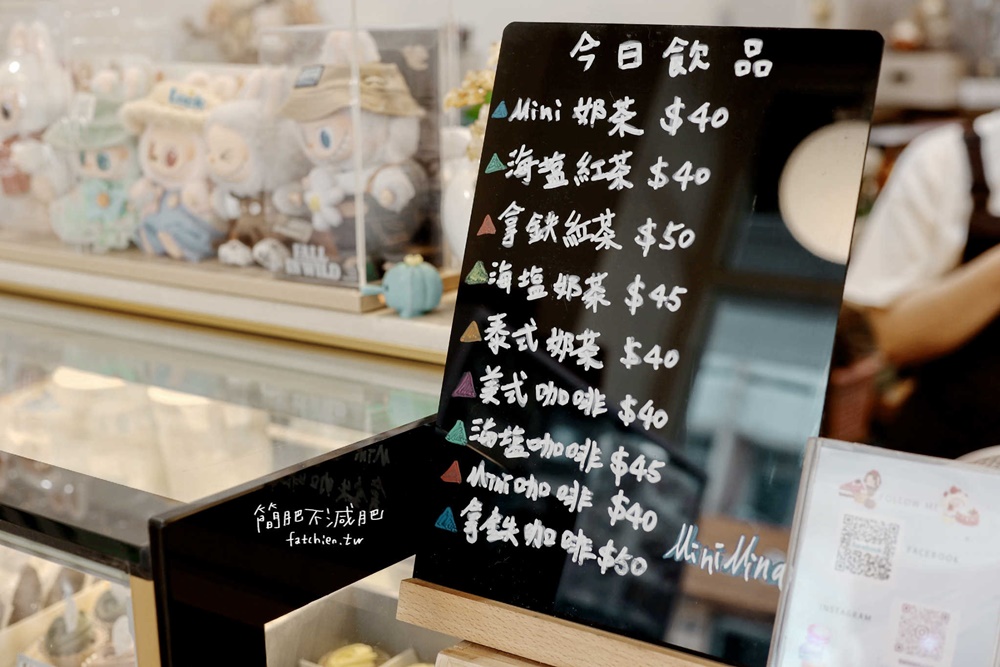 今日飲品
Mini 奶茶 $40
海塩紅茶 $40
拿鉄紅茶 $50
海塩奶茶 $45
泰式奶茶 $40
美式咖啡 $40
海塩咖啡 $45
Mini咖啡 $40
拿鉄咖啡 $50
MiniMina
簡肥不減肥
fatchien.tw
FALL
IN WILD
FOLLOW ME
FACEBOOK
INSTAGRAM